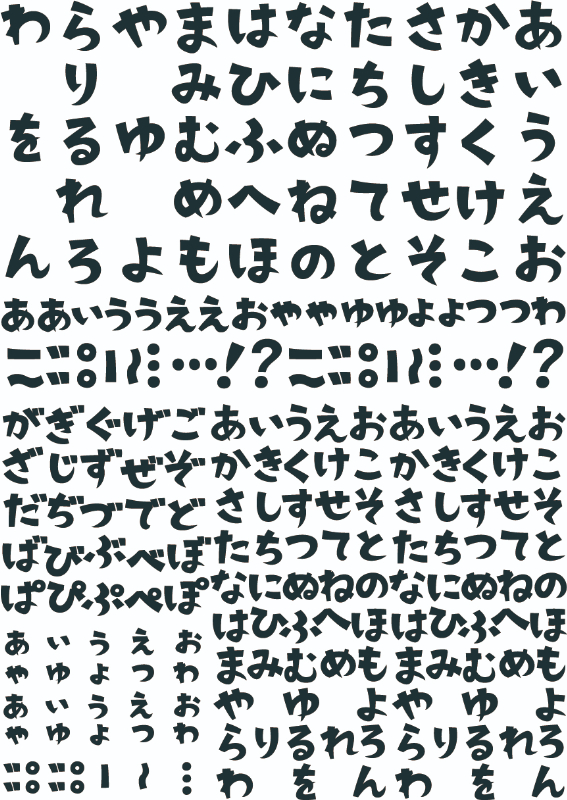 わらやまはなたさかあ
り みひにちしきい
をるゆむふぬつすくう
れ めへねてせけえ
んろよもほのとそこお
ああいううええおややゆゆよよつつわ
がぎぐげご あいうえおあいうえお
ざじずぜぞ かきくけこ かきくけこ
だぢづでど さしすせそ さしすせそ
ばびぶべぼ たちつてと たちつてと
ぱぴぷぺぽ なにぬねのなにぬねの
はひふへほはひふへほ
まみむめも まみむめも
や ゆ よや ゆ よ
らりるれろ らりるれろ
わ を んわ を ん
あ い う え お
や ゆ よ つ わ
あ い う え お
や ゆ よ つ わ